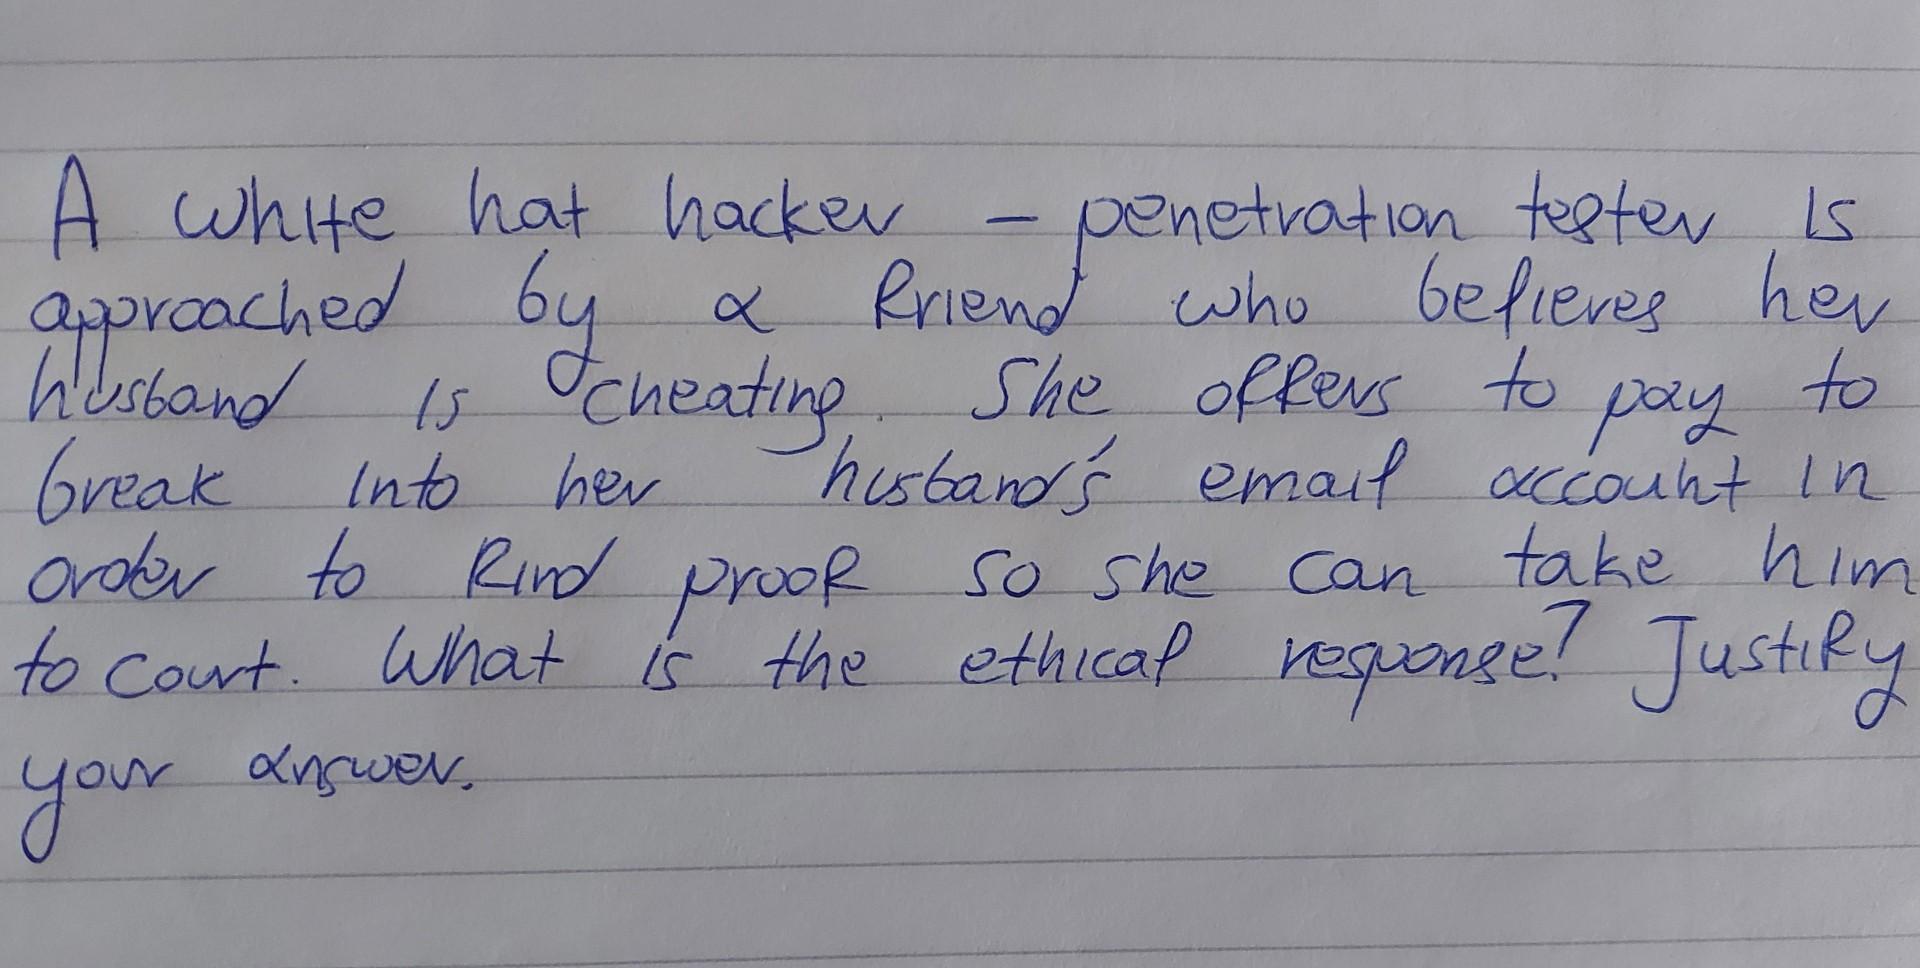 A white hat hacker - penetration tester is
approached by a friend who believes her
husband is cheating. She offers to pay to
break into her husband's email account in
order to find proof so she can take him
to court. What is the ethical response? Justify
your answer.